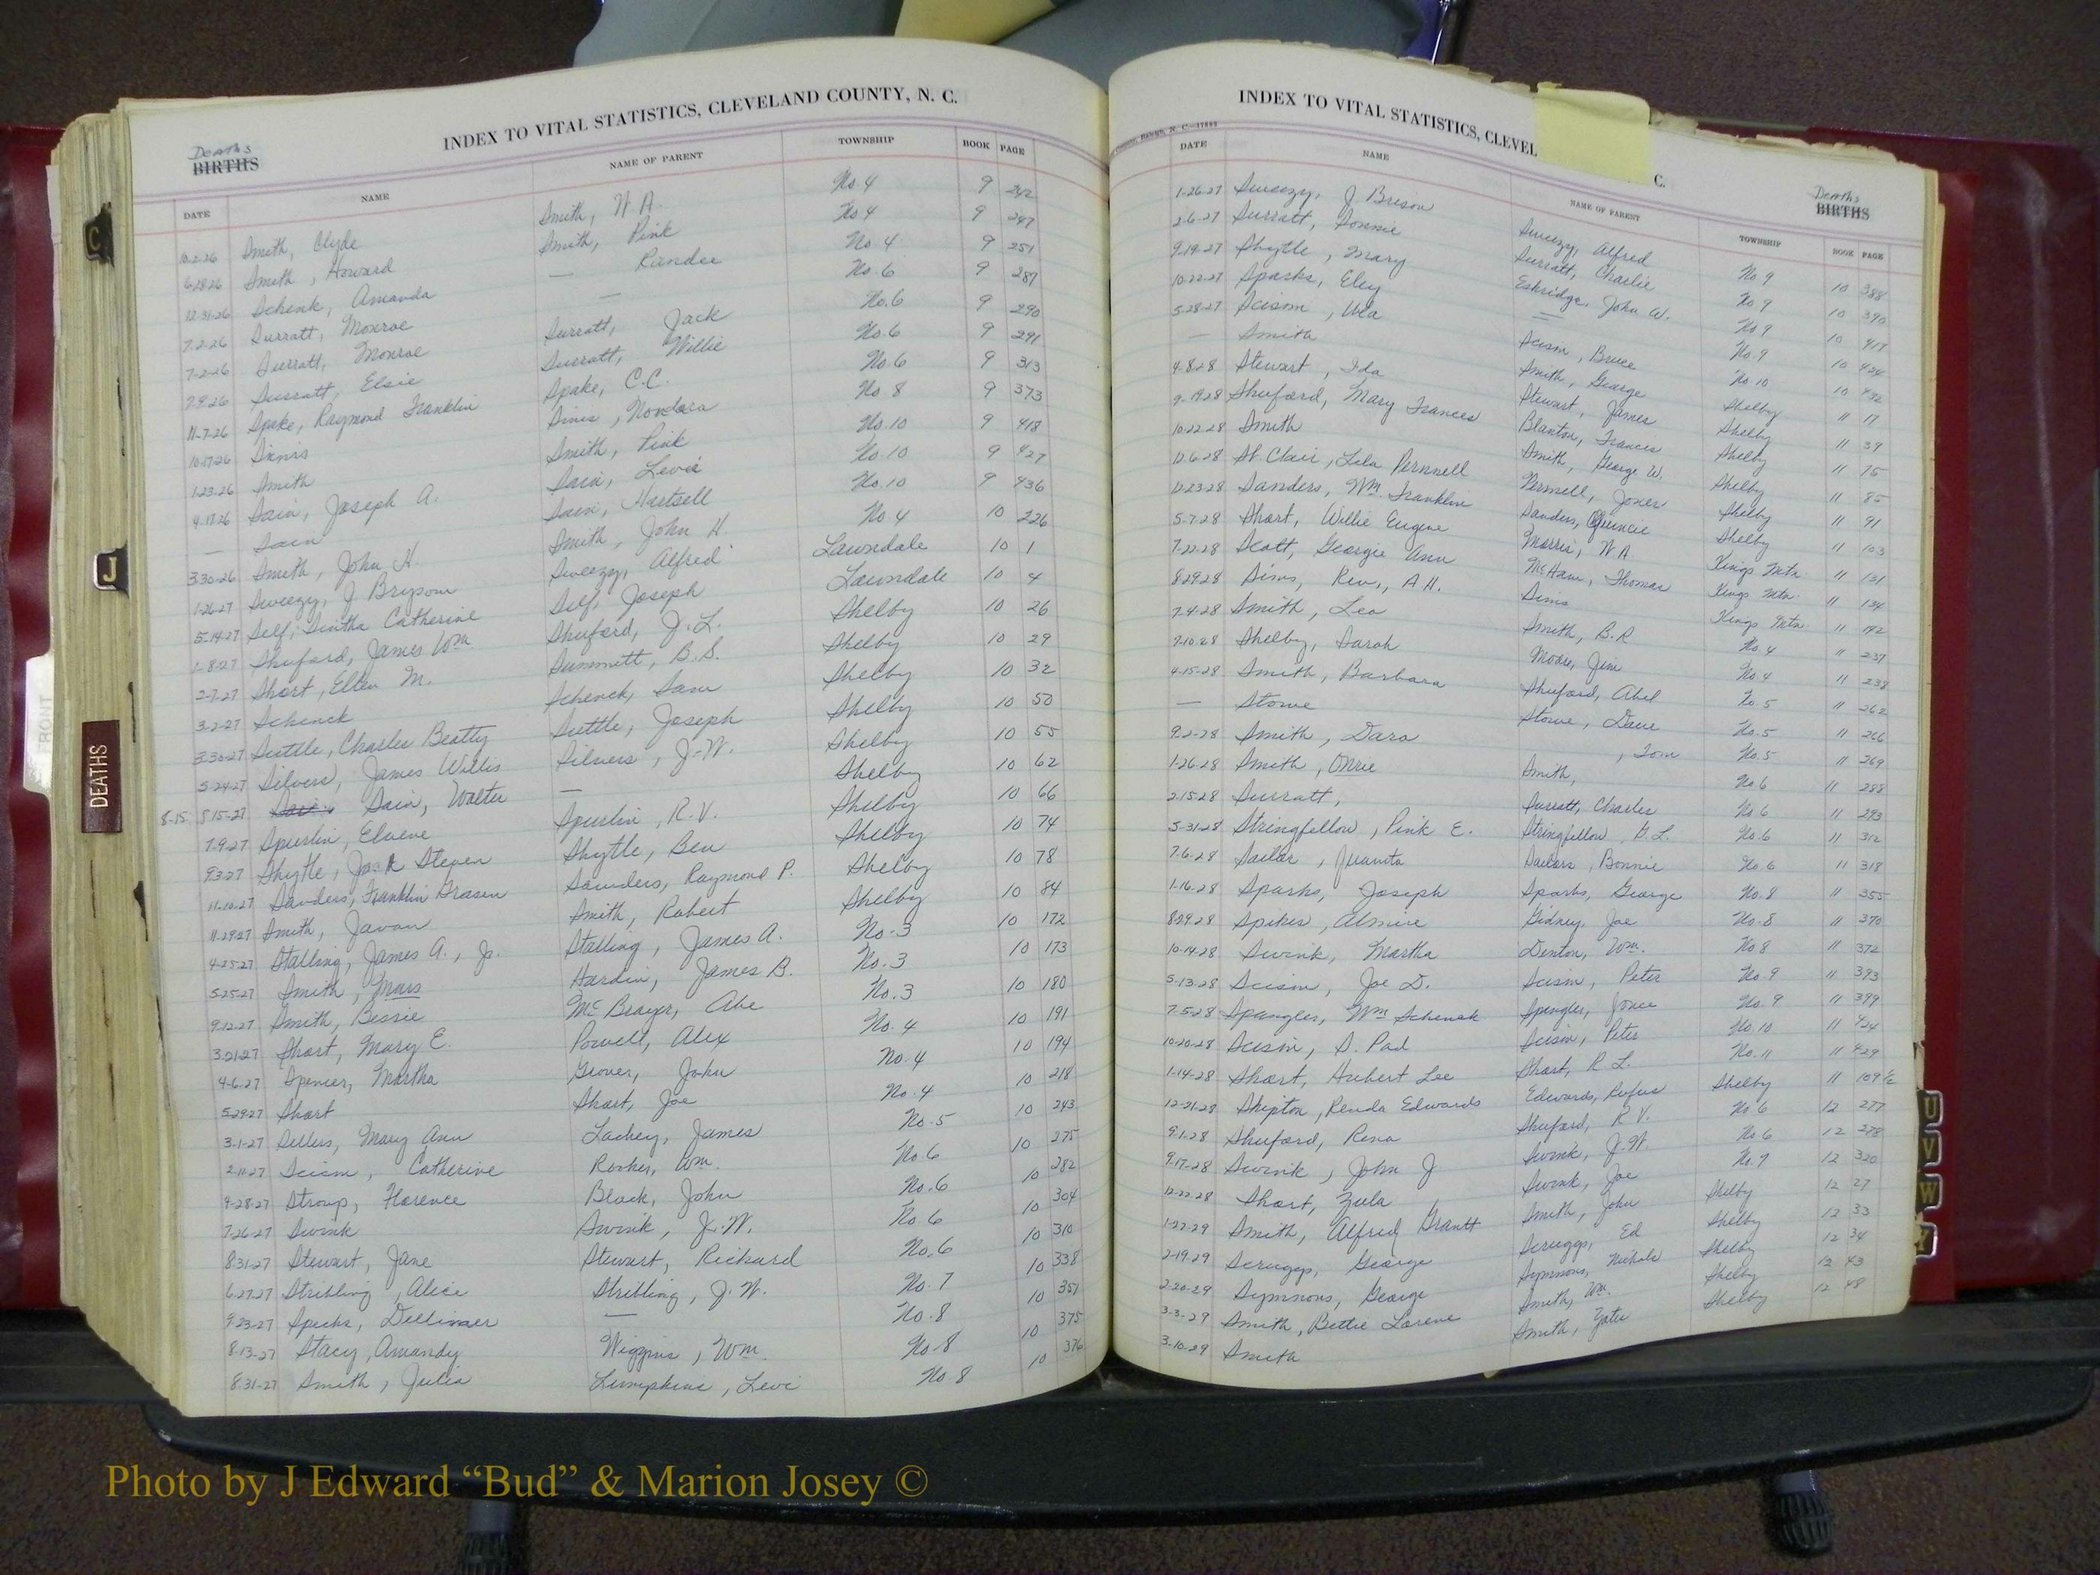 INDEX TO VITAL STATISTICS, CLEVELAND COUNTY, N. C.
Deaths
BIRTHS
DATE NAME NAME OF PARENT TOWNSHIP BOOK PAGE
10-2-26 Smith, Clyde Smith, W.A. No.4 9 242
6-28-26 Smith, Howard Smith, Pink No.4 9 247
12-31-26 Schenk, Amanda — Rander No 4 9 251
7-2-26 Surratt, Monroe — No.6 9 287
7-2-26 Surratt, Monroe Surratt, Jack No.6 9 290
7-9-26 Surratt, Elsie Surratt, Willie No.6 9 291
11-7-26 Spake, Raymond Franklin Spake, C.C. No.6 9 313
10-17-26 Sims Sims, Nondora No 8 9 373
1-23-26 Smith Smith, Pink No.10 9 418
4-17-26 Sain, Joseph A. Sain, Levie No.10 9 427
— Sain Sain, Hartsell No.10 9 436
3-30-26 Smith, John H. Smith, John H. No 4 10 226
1-26-27 Sweezy, J Bryson Sweezy, Alfred Lawndale 10 1
5-14-27 Self, Sintha Catherine Self, Joseph Lawndale 10 4
1-8-27 Shuford, James Wm Shuford, J.L. Shelby 10 26
2-7-27 Short, Ellen M. Summett, B.S. Shelby 10 29
3-2-27 Schenck Schenck, Sam Shelby 10 32
3-30-27 Suttle, Charles Beatty Suttle, Joseph Shelby 10 50
5-24-27 Silvers, James Willis Silvers, J.W. Shelby 10 55
8-15 8-15-27 Sain, Walter — Shelby 10 62
7-9-27 Spurlin, Elvene Spurlin, R.V. Shelby 10 66
9-3-27 Shytle, Jack Steven Shytle, Ben Shelby 10 74
11-10-27 Sanders, Franklin Saunders, Raymond P. Shelby 10 78
11-29-27 Smith, Javan Smith, Robert Shelby 10 84
4-25-27 Stalling, James A., Jr. Stalling, James A. No.3 10 172
5-25-27 Smith, Mars Hardin, James B. No.3 10 173
9-12-27 Smith, Bessie McBrayer, Abe No.3 10 180
3-21-27 Short, Mary E. Powell, Alex No.4 10 191
4-6-27 Spencer, Martha Grover, John No.4 10 194
5-29-27 Short Short, Joe No.4 10 218
3-1-27 Sellers, Mary Ann Lackey, James No.5 10 243
2-11-27 Scism, Catherine Rooker, Wm. No 6 10 275
4-28-27 Stroup, Florence Black, John No.6 10 282
7-26-27 Swink Swink, J.W. No 6 10 304
8-31-27 Stewart, Jane Stewart, Richard No.6 10 310
6-27-27 Stribling, Alice Stribling, J.W. No.7 10 338
9-23-27 Specks, Dellinger — No.8 10 351
8-13-27 Stacy, Amandy Wiggins, Wm. No.8 10 375
8-31-27 Smith, Julia Lumpkins, Levi No 8 10 376
INDEX TO VITAL STATISTICS, CLEVEL C.
Raleigh, N. C.
Deaths
BIRTHS
DATE NAME NAME OF PARENT TOWNSHIP BOOK PAGE
1-26-27 Sweezy, J Brison Sweezy, Alfred No 9 10 388
2-6-27 Surratt, Donnie Surratt, Charlie No 9 10 390
9-19-27 Shytle, Mary Eskridge, John W. No 9 10 417
10-22-27 Sparks, Eley — No.9 10 424
5-28-27 Scism, Ula Scism, Bruce No 10 10 432
— Smith Smith, George Shelby 11 17
4-8-28 Stewart, Ida Stewart, James Shelby 11 39
9-19-28 Shuford, Mary Frances Blanton, Frances Shelby 11 75
10-22-28 Smith Smith, George W. Shelby 11 85
12-6-28 St. Clair, Lila Pernnell Pernnell, Jones Shelby 11 91
12-23-28 Sanders, Wm. Franklin Sanders, Quincie Shelby 11 103
5-7-28 Short, Willie Eugene Morris, W A Kings Mtn. 11 131
7-22-28 Scott, Georgie Ann McHam, Thomas Kings Mtn. 11 134
8-29-28 Sims, Rev., A.H. Sims Kings Mtn. 11 192
7-4-28 Smith, Leo Smith, B.R No 4 11 237
7-10-28 Shelby, Sarah Moore, Jim No 4 11 238
4-15-28 Smith, Barbara Shuford, Abel No 5 11 262
— Stowe Stowe, Dave No.5 11 266
9-2-28 Smith, Dora , Tom No.5 11 269
1-26-28 Smith, Onrie Smith, No 6 11 288
2-15-28 Surratt, Surratt, Charles No 6 11 293
5-31-28 Stringfellow, Pink E. Stringfellow, G.L. No.6 11 312
7-6-28 Sailor, Juanita Sailors, Bonnie No 6 11 318
1-16-28 Sparks, Joseph Sparks, George No.8 11 355
8-29-28 Spikes, Almire Gidney, Joe No.8 11 370
10-14-28 Swink, Martha Denton, Wm. No 8 11 372
5-13-28 Scism, Joe D. Scism, Peter No.9 11 393
7-5-28 Spangler, Wm Schenck Spangler, No.9 11 399
10-20-28 Scism, S. Pad Scism, Peter No.10 11 424
1-14-28 Short, Hubert Lee Short, R L. No.11 11 429
12-21-28 Shipton, Renda Edwards Edwards, Rufus Shelby 11 109½
9-1-28 Shuford, Rena Shuford, R.V. No.6 12 277
9-17-28 Swink, John J. Swink, J.W. No 6 12 278
12-22-28 Short, Zula Swink, Joe No.9 12 320
1-27-29 Smith, Alfred Grantt Smith, John Shelby 12 27
2-19-29 Scruggs, George Scruggs, Ed Shelby 12 33
2-20-29 Symmons, George Symmons, Nichols Shelby 12 34
3-3-29 Smith, Bettie Lorene Smith, Wm. Shelby 12 43
3-10-29 Smith Smith, Yates Shelby 12 48
C
J
DEATHS
U
V
W
Y
Photo by J Edward “Bud” & Marion Josey ©